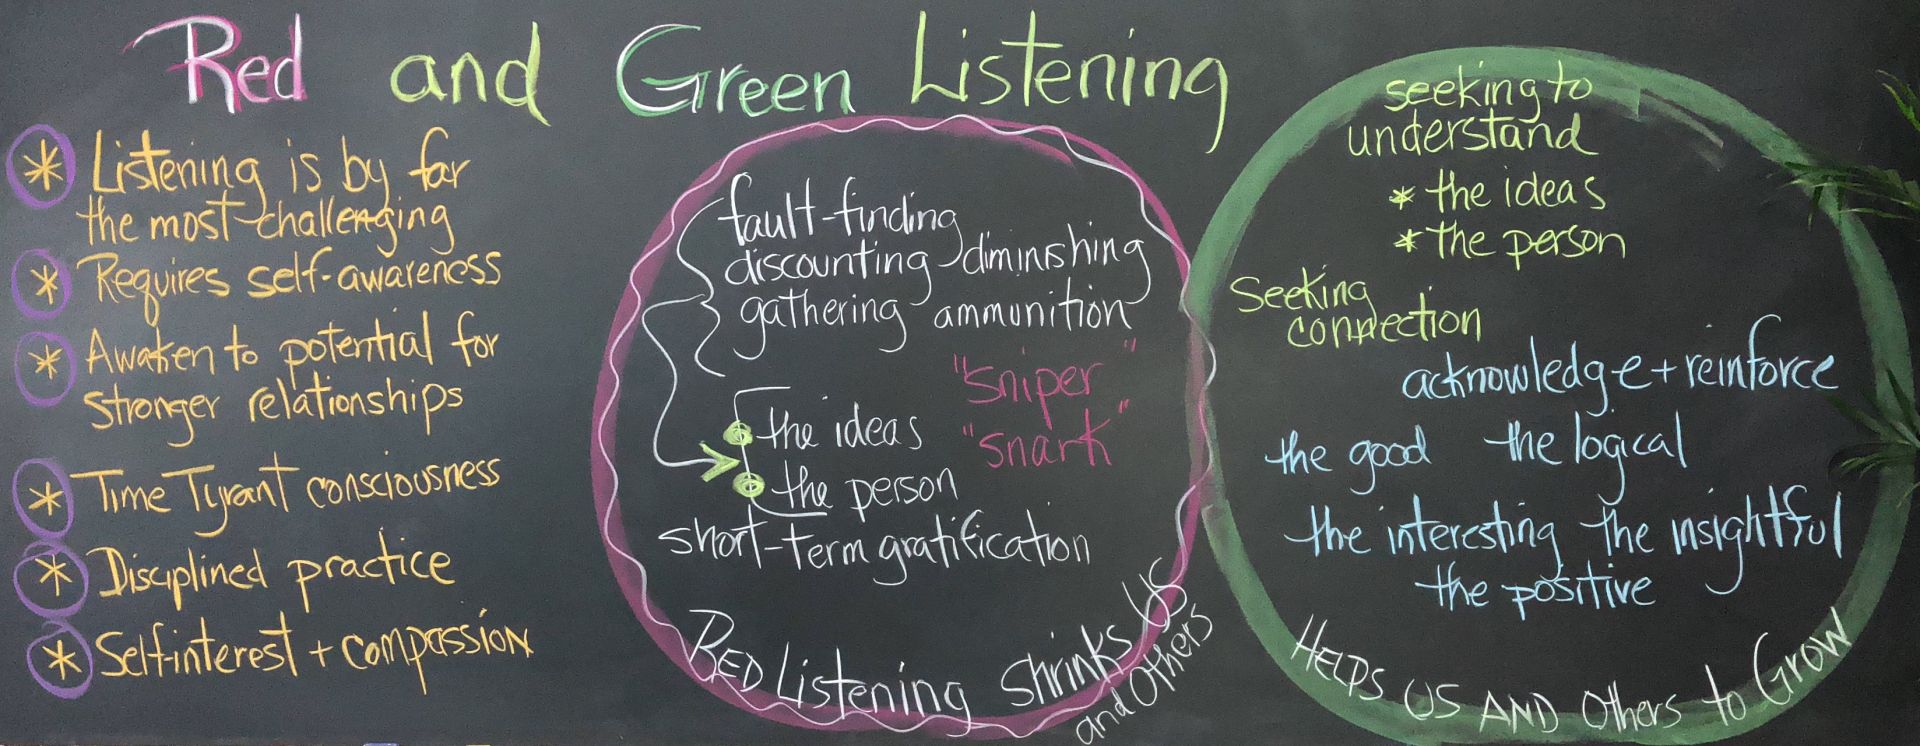 Red and Green Listening
* Listening is by far
the most challenging
* Requires self-awareness
* Awaken to potential for
stronger relationships
* Time Tyrant consciousness
* Disciplined practice
* Self-interest + compassion
fault-finding
discounting diminishing
gathering ammunition
"sniper"
"snark"
the ideas
the person
short-term gratification
RED Listening shrinks US
and Others
seeking to
understand
* the ideas
* the person
Seeking
connection
acknowledge + reinforce
the good the logical
the interesting the insightful
the positive
HELPS US AND Others to Grow